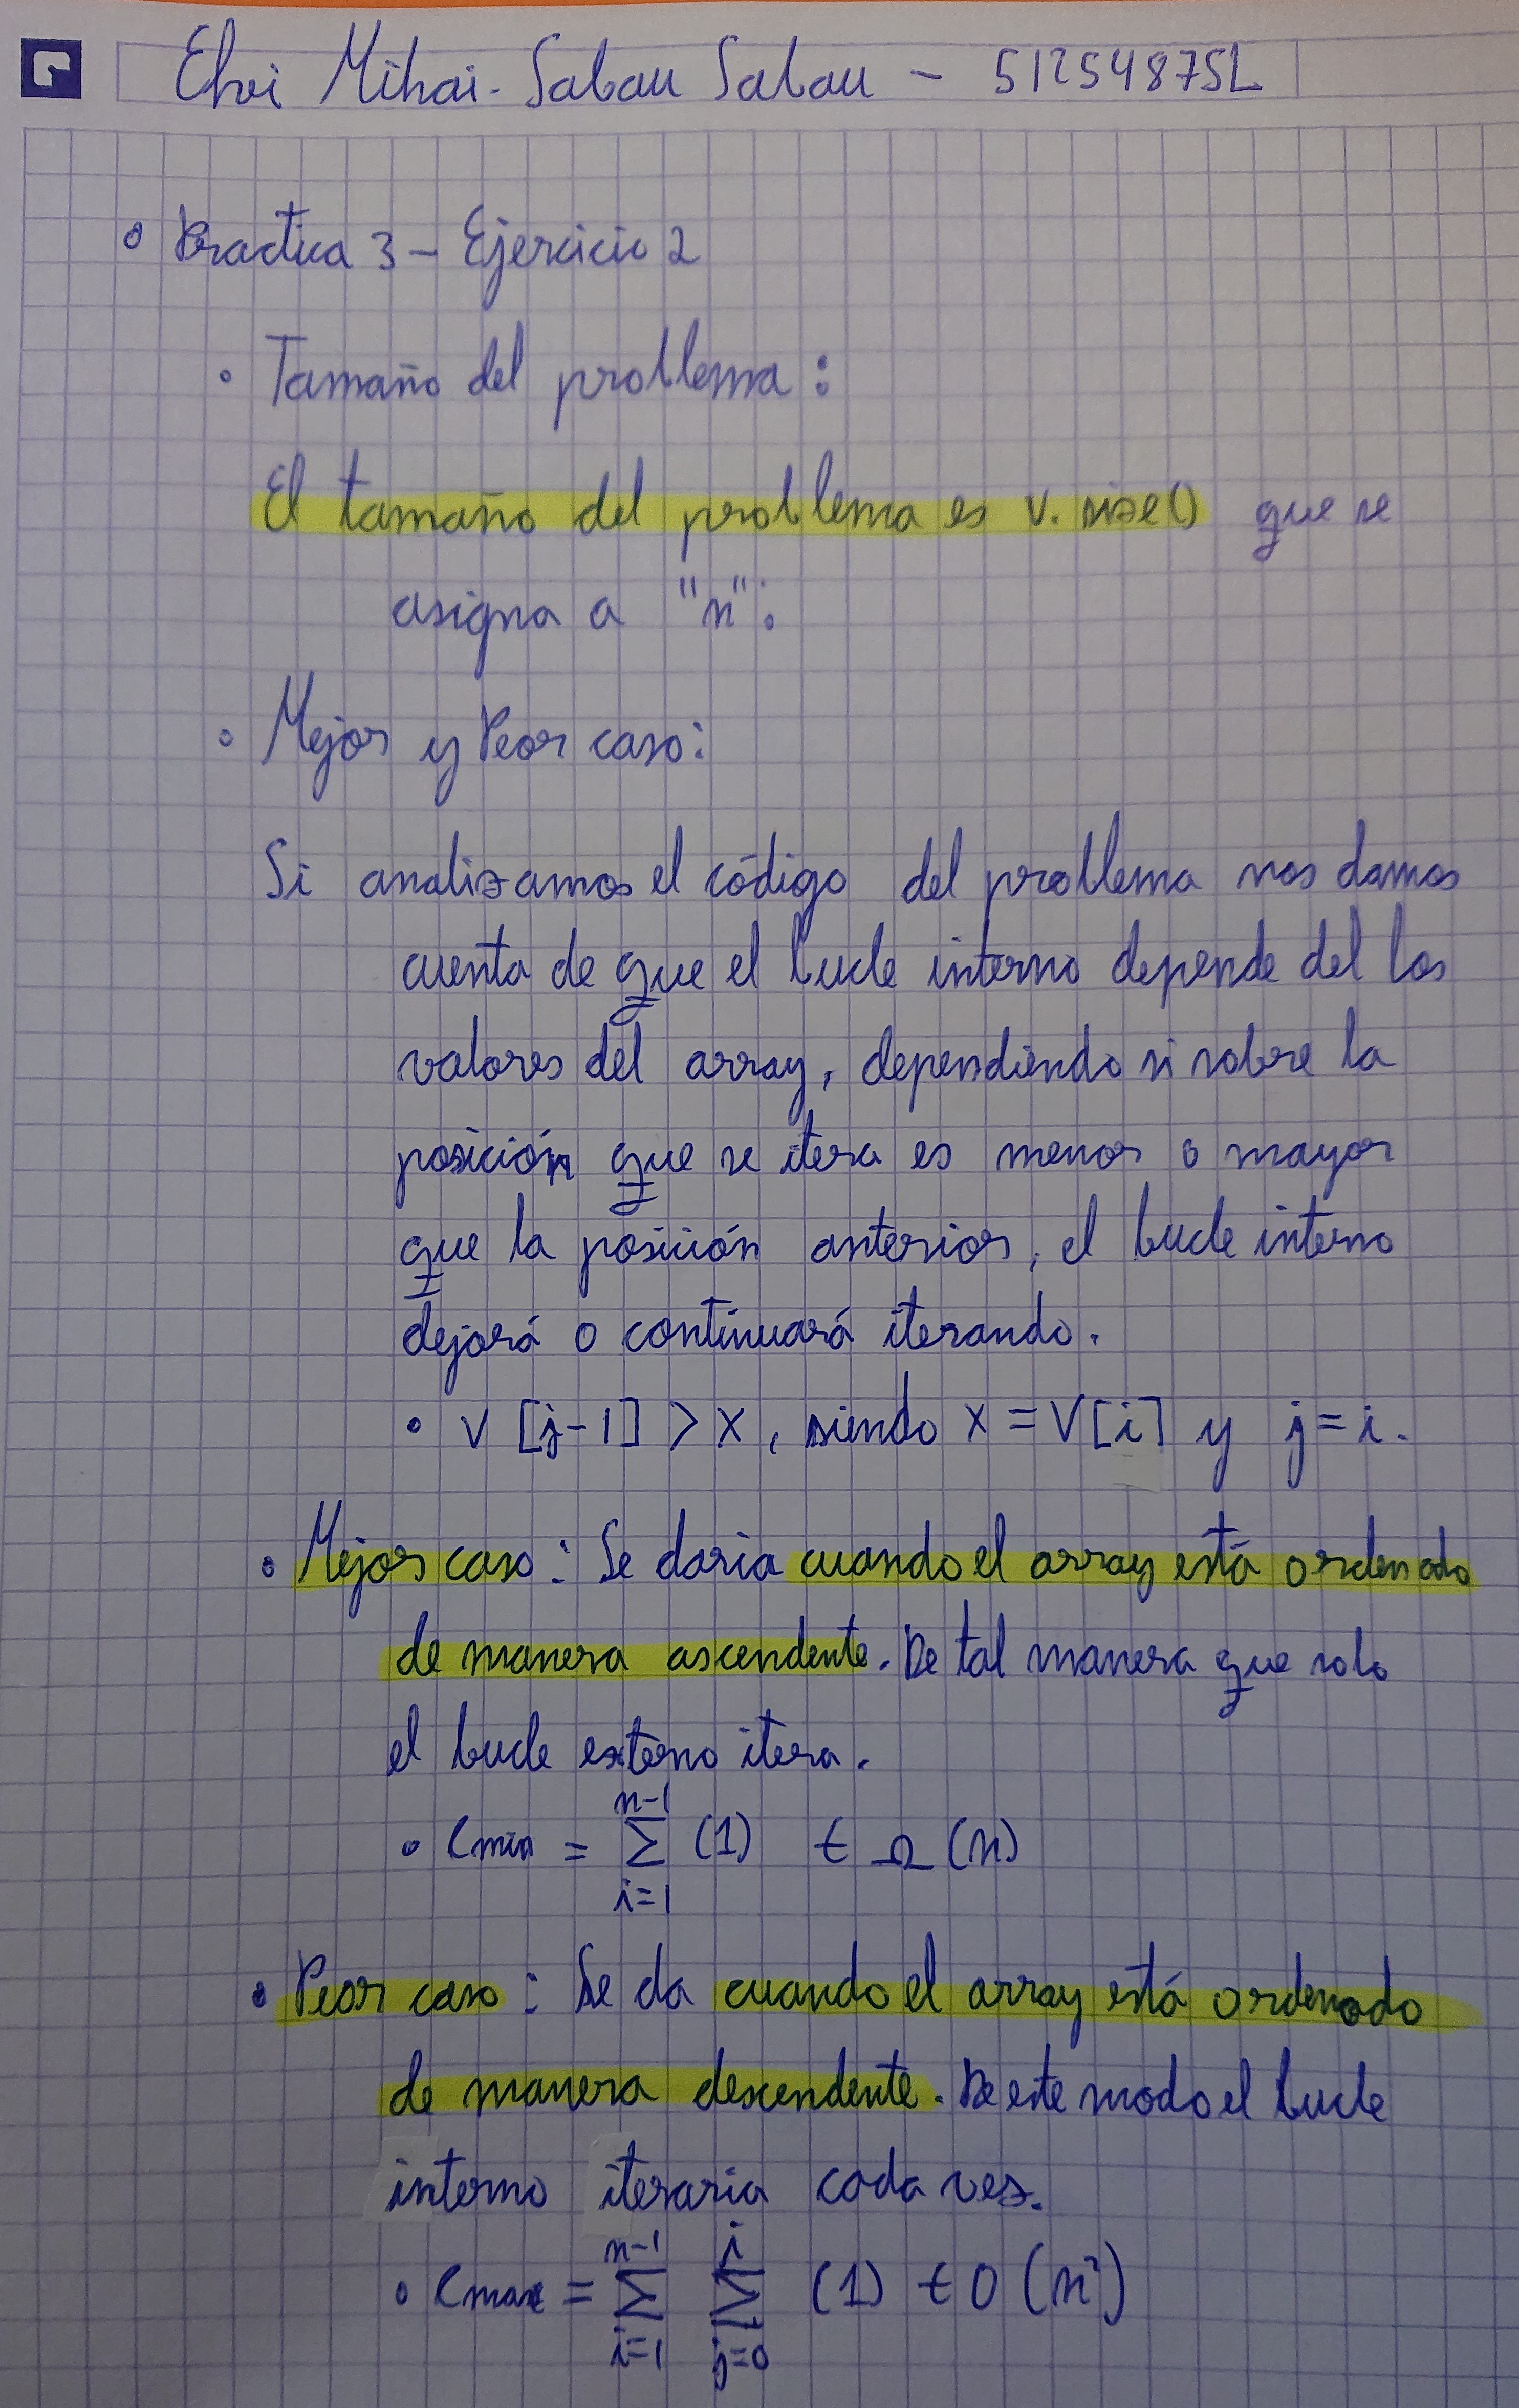 Elvi Mihai Sabau Sabau - 51254875L
Practica 3 - Ejercicio 2
Tamaño del problema:
El tamaño del problema es v.size() que se
asigna a "n":
Mejor y Peor caso:
Si analizamos el código del problema nos damos
cuenta de que el bucle interno depende del los
valores del array, dependiendo si sobre la
posición que se itera es menor o mayor
que la posición anterior, el bucle interno
dejará o continuará iterando.
V [j-1] > X, siendo X = V[i] y j = i.
Mejor caso: Se daria cuando el array está ordenado
de manera ascendente. De tal manera que solo
el bucle externo itera.
n-1
Cmin = Σ (1) ∈ Ω (n)
i=1
Peor caso: Se da cuando el array está ordenado
de manera descendente. De este modo el bucle
interno iteraria cada vez.
n-1 i
Cmax = Σ Σ (1) ∈ O (n²)
i=1 j=0